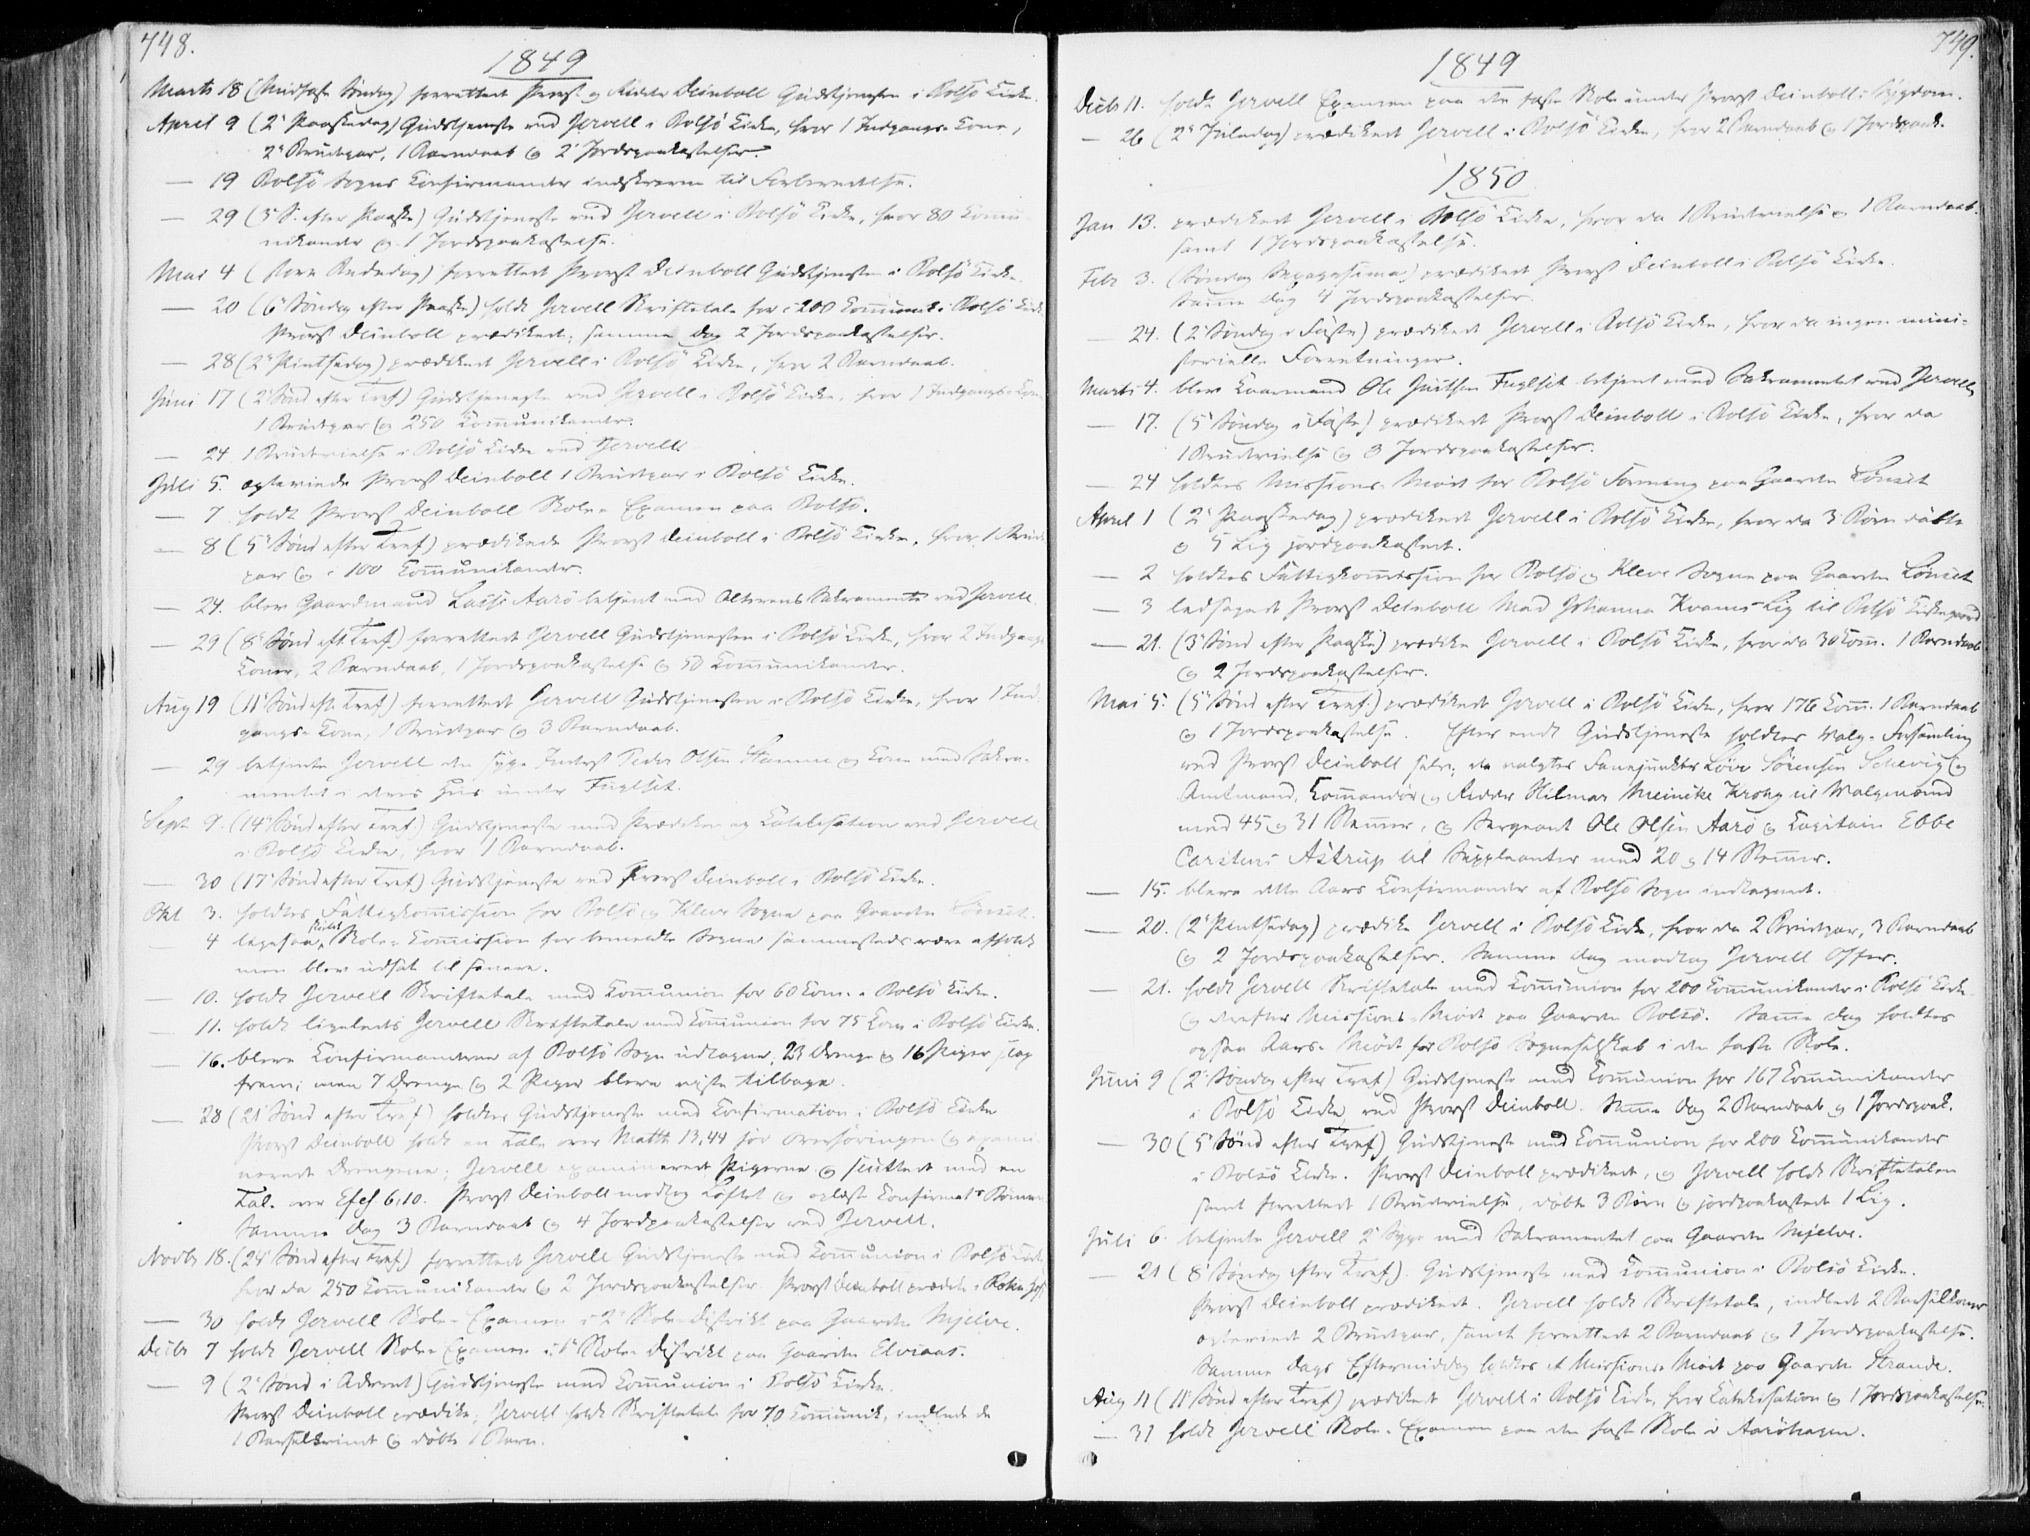 748.
1849
Marts 18 (Midfaste Søndag) forrettede Provst og Ridder Deinboll Gudstjenesten i Bolsö Kirke.
April 9 (2den Paaskedag) Gudstjeneste ved Jervell i Bolsö Kirke, hvor 1 Indgangs-Kone,
2de Brudepar, 1 Barndaab og 2de Jordspaakastelser.
— 19 Bolsö Sogns Confirmander indskrevne til Forberedelse.
— 29 (3 S. efter Paaske) Gudstjeneste ved Jervell i Bolsö Kirke, hvor 80 Commu-
nikanter og 1 Jordspaakastelse.
Mai 4 (store Bededag) forrettede Provst Deinboll Gudstjenesten i Bolsö Kirke.
— 20 (6te Søndag efter Paaske) holdt Jervell Skriftetale for 200 Communik. i Bolsö Kirke
Provst Deinboll prædikede; samme Dag 2 Jordspaakastelser.
— 28 (2den Pintsedag) prædikede Jervell i Bolsö Kirke, hvor 2 Barndaab.
Juni 17 (2 Sønd efter Tref) Gudstjeneste ved Jervell i Bolsö Kirke, hvor 1 Indgangs-Kone
1 Brudepar og 250 Communikanter.
— 24 1 Brudevielse i Bolsö Kirke ved Jervell
Juli 5. egteviede Provst Deinboll 1 Brudepar i Bolsö Kirke.
— 7 holdt Provst Deinboll Skole-Examen paa Bolsö.
— 8 (5te Sønd efter Tref) prædikede Provst Deinboll i Bolsö Kirke, hvor 1 Brude
par og 100 Communikanter.
— 24. blev Gaardmand Lasse Aarö betjent med Alterens Sakramente ved Jervell.
— 29 (8de Sønd eft Tref.) forrettede Jervell Gudstjenesten i Bolsö Kirke, hvor 2 Indgangs
Koner, 2 Barndaab, 1 Jordspaakastelse og 50 Communikanter.
Aug 19 (11te Sønd eft. Tref.) forrettede Jervell Gudstjenesten i Bolsö Kirke, hvor 1 Ind
gangs-Kone, 1 Brudepar og 3 Barndaab.
— 29 betjente Jervell den syge Inderst Peder Olsen og Kone med Sakra-
mentet i deres Hus under Fuglset.
Sept. 9. (14de Sønd efter Tref) Gudstjeneste med Prædiken og Katekisation ved Jervell
i Bolsö Kirke, hvor 1 Barndaab.
— 30 (17de Sønd efter Tref) Gudstjeneste ved Provst Deinboll i Bolsö Kirke.
Okt 3. holdtes Fattigkommission for Bolsö og Kleve Sogne paa Gaarden Lönset.
— 4 ligesaa skulde Skole-Commission for bemeldte Sogne sammesteds være afholdt
men blev udsat til senere.
— 10. holdt Jervell Skriftetale med Communion for 60 Com. i Bolsö Kirke.
— 11. holdt ligeledes Jervell Skriftetale med Communion for 75 Com i Bolsö Kirke.
— 16. bleve Confirmanderne af Bolsö Sogn udtagne; 23 Drenge og 16 Piger slap
frem; men 7 Drenge og 2 Piger bleve viste tilbage.
— 28 (21 Sønd efter Tref) holdtes Gudstjeneste med Confirmation i Bolsö Kirke
Provst Deinboll holdt en Tale over Matth 13,44 før Overhøringen og exami-
nerede Drengene; Jervell examinerede Pigerne og sluttede med en
Tale over Efes 6,10. Provst Deinboll modtog Løftet og oplæste Confirmats Bønnen
Samme Dag 3 Barndaab og 4 Jordpaakastelser ved Jervell.
Novbr 18. (24 Sønd efter Tref.) forrettede Jervell Gudstjeneste med Communion i Bolsö Kirke
hvor da 250 Communikanter og 2 Jordspaakastelser. Provst Deinboll prædikte i
— 30 holdt Jervell Skole-Examen i 2det Skole-Distrikt paa Gaarden Mjelve.
Decbr 7 holdt Jervell Skole-Examen i 1ste Skole-Distrikt paa Gaarden Elvsaas.
— 9 (2den Sønd i Advent) Gudstjeneste med Communion i Bolsö Kirke.
Provst Deinboll prædikte; Jervell holdt Skriftetale for 70 Communik, indledede
1 Barselkvinde og døbte 1 Barn.
749.
1849
Decbr 11. holdt Jervell Examen paa den faste Skole under Provst Deinbolls Sygdom.
— 26 (2den Juledag) prædikede Jervell i Bolsö Kirke, hvor 2 Barndaab og 1 Jordspaak.
1850
Jan 13. prædikede Jervell i Bolsö Kirke, hvor da 1 Brudevielse og 1 Barndaab.
samt 1 Jordspaakastelse.
Febr 3. (Søndag Sexagesima) prædikede Provst Deinboll i Bolsö Kirke.
Samme Dag 4 Jordspaakastelser.
— 24. (2 Søndag i Faste) prædikede Jervell i Bolsö Kirke, hvor da ingen mini-
sterielle Forretninger.
Marts 4. blev Kaarmand Ole Fuglset betjent med Sakramentet ved Jervell
— 17. (5te Søndag i Faste) prædikede Provst Deinboll i Bolsö Kirke, hvor da
1 Brudevielse og 3 Jordspaakastelser.
— 24 holdtes Missions-Møde for Bolsö Forening paa Gaarden Lönset
April 1 (2den Paaskedag) prædikede Jervell i Bolsö Kirke, hvor da 3 Børn døbte
og 5 Lig jordpaakastede.
— 2 holdtes Fattigkommission for Bolsö og Kleve Sogne paa Gaarden Lönset
— 3 ledsagede Provst Deinboll Mad Johanna Kvams Lig til Bolsö Kirkegaard
— 21. (3 Sønd efter Paaske) prædikte Jervell i Bolsö Kirke, hvor da 30 Com. 1 Barndaab
og 2 Jordspaakastelser.
Mai 5. (5te Sønd efter Tref.) prædikede Jervell i Bolsö Kirke, hvor 176 Com. 1 Barndaab
og 1 Jordspaakastelse. Efter endt Gudstjeneste holdtes Valg-Forsamling
ved Provst Deinboll selv; da valgtes Fanejunker Sörensen og
Amtmand, Commandör og Ridder Hilmar Meincke Krohg til Valgmænd
med 45 og 31 Stemmer, og Sergeant Ole Olsen Aarö og Capitain Ebbe
Carstens Astrup til Suppleanter med 20 og 14 Stemmer.
— 15. bleve dette Aars Confirmander af Bolsö Sogn indtegnede.
— 20. (2den Pintsedag) prædikte Jervell i Bolsö Kirke, hvor da 2 Brudepar, 3 Barndaab
og 2 Jordspaakastelser. Samme Dag modtog Jervell Offer.
— 21. holdt Jervell Skriftetale med Communion for 200 Communikanter i Bolsö Kirke
og derefter Missions-Møde paa Gaarden Bolsö. Samme Dag holdtes
ogsaa Aars-Møde for Bolsö Sogneselskab i den faste Skole.
Juni 9 (2den Søndag efter Tref) Gudstjeneste med Communion for 167 Communikanter
i Bolsö Kirke ved Provst Deinboll. Samme Dag 2 Barndaab og 1 Jordspaak.
— 30 (5te Sønd efter Tref) Gudstjeneste med Communion for 200 Communikanter
i Bolsö Kirke. Provst Deinboll prædikede, og Jervell holdt Skriftetalen
samt forrettede 1 Brudevielse, døbte 3 Børn og jordpaakastede 1 Lig.
Juli 6. betjente Jervell 2de Syge med Sakramentet paa Gaarden Mjelve.
— 21 (8 Søndag efter Tref.) Gudstjeneste med Communion i Bolsö Kirke.
Provst Deinboll prædikede. Jervell holdt Skriftetale, indledede 2 Barselkoner
egteviede 2 Brudepar, samt forrettede 2 Barndaab og 1 Jordspaakastelse.
Samme Dags Eftermiddag holdtes et Missions-Møde paa Gaarden Strande.
Aug 11 (11 Sønd efter Tref) prædikede Jervell i Bolsö Kirke, hvor Katekisation og 1 Jordspaakastelse.
— 31 holdt Jervell Skole-Examen paa den faste Skole i Aaröhagen.